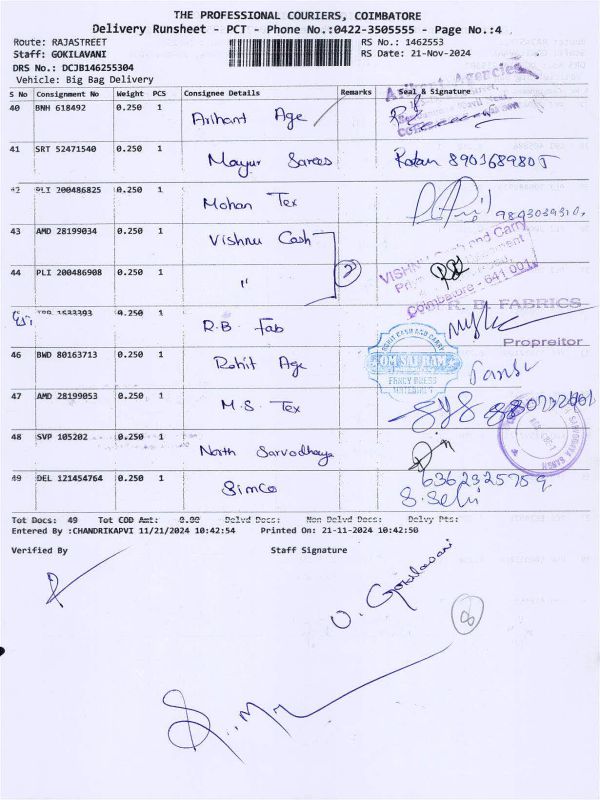 THE PROFESSIONAL COURIERS, COIMBATORE
Delivery Runsheet - PCT - Phone No.:0422-3505555 - Page No.:4
Route: RAJASTREET RS No.: 1462553
Staff: GOKILAVANI RS Date: 21-Nov-2024
DRS No.: DCJB146255304
Vehicle: Big Bag Delivery
S No Consignment No Weight PCS Consignee Details Remarks Seal & Signature
Arihant Agencies
40 BNH 618492 0.250 1 Arihant Age
41 SRT 52471540 0.250 1 Mayur Sarees Ratan 8903689805
42 PLI 200486825 0.250 1 Mohan Tex
43 AMD 28199034 0.250 1 Vishnu Cash
VISHNU Cash and Carry
44 PLI 200486908 0.250 1 " 2
Coimbatore - 641 001
R. B. FABRICS
0.250 1 R.B. Fab
Propreitor
46 BWD 80163713 0.250 1 Rohit Age
ROHIT CASH AND CARRY
OM SAI RAM
47 AMD 28199053 0.250 1 M.S. Tex
48 SVP 105202 0.250 1 North Sarvodhaya
SARVODAYA SANGH
49 DEL 121454764 0.250 1 Simco
Tot Docs: 49 Tot COD Amt: 0.00 Delvd Docs: Non Delvd Docs: Delvy Pts:
Entered By :CHANDRIKAPVI 11/21/2024 10:42:54 Printed On: 21-11-2024 10:42:50
Verified By Staff Signature
V. Gokilavani
8